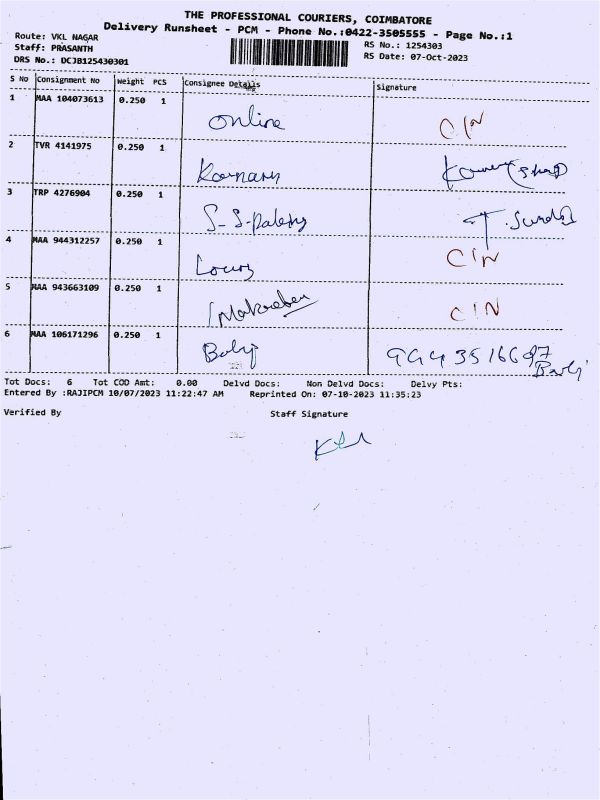 THE PROFESSIONAL COURIERS, COIMBATORE
Delivery Runsheet - PCM - Phone No.:0422-3505555 - Page No.:1
Route: VKL NAGAR
Staff: PRASANTH
DRS No.: DCJB125430301
RS No.: 1254303
RS Date: 07-Oct-2023
S No Consignment No Weight PCS Consignee Details Signature
1 MAA 104073613 0.250 1 Online CIN
2 TVR 4141975 0.250 1
3 TRP 4276904 0.250 1
4 MAA 944312257 0.250 1 CIN
5 MAA 943663109 0.250 1 CIN
6 MAA 106171296 0.250 1
Tot Docs: 6 Tot COD Amt: 0.00 Delvd Docs: Non Delvd Docs: Delvy Pts:
Entered By :RAJIPCM 10/07/2023 11:22:47 AM Reprinted On: 07-10-2023 11:35:23
Verified By Staff Signature